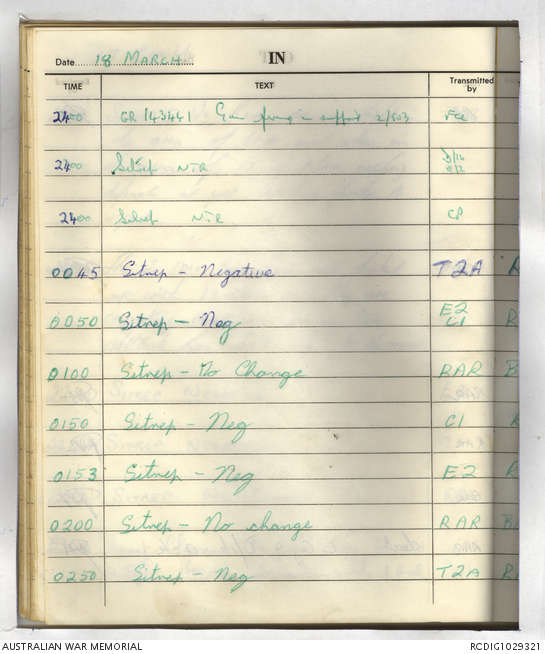 Date 18 MARCH IN
TIME TEXT Transmitted by
2400 GR 143441 Gun firing in support 2/503
2400 Sitrep NTR
2400 Sitrep NTR CP
0045 Sitrep - Negative T2A R
0050 Sitrep - Neg E2 C1 R
0100 Sitrep - No Change RAR B
0150 Sitrep - Neg C1 R
0153 Sitrep - Neg E2 R
0200 Sitrep - No change RAR B
0250 Sitrep - Neg T2A R
AUSTRALIAN WAR MEMORIAL RCDIG1029321